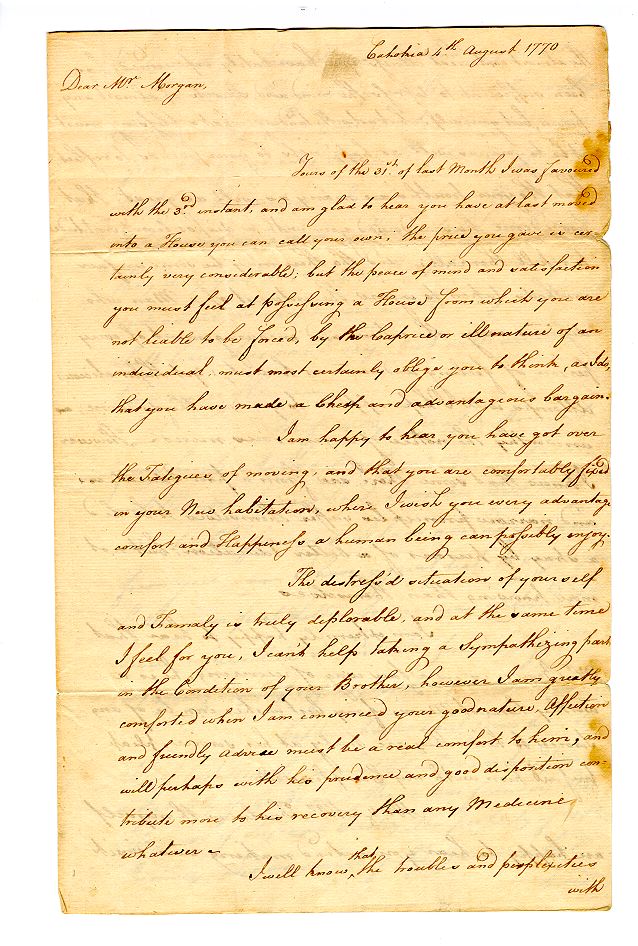 Cahokia 4th August 1770
Dear Mr Morgan,
Yours of the 31st of last Month I was favoured
with the 3rd instant, and am glad to hear you have at last moved
into a House you can call your own; the price you gave is cer-
tainly very considerable; but the peace of mind and satisfaction
you must feel at possessing a House from which you are
not liable to be forced, by the Caprice or ill nature of an
individual, must most certainly oblige you to think, as I do,
that you have made a Cheap and advantageous bargain.
I am happy to hear you have got over
the Fatigues of moving, and that you are comfortably fixed
in your New habitation, where I wish you every advantage
comfort and Happiness a human being can possibly enjoy.
The distress'd situation of your self
and Famaly is truly deplorable, and at the same time
I feel for you, I can't help taking a Sympathizing part
in the Condition of your Brother, however I am greatly
comforted when I am convinced your good nature, Affection
and friendly Advise must be a real comfort to him, and
will perhaps with his prudence and good disposition con-
tribute more to his recovery than any Medicine
whatever.
I well know, that the troubles and perplexities
with